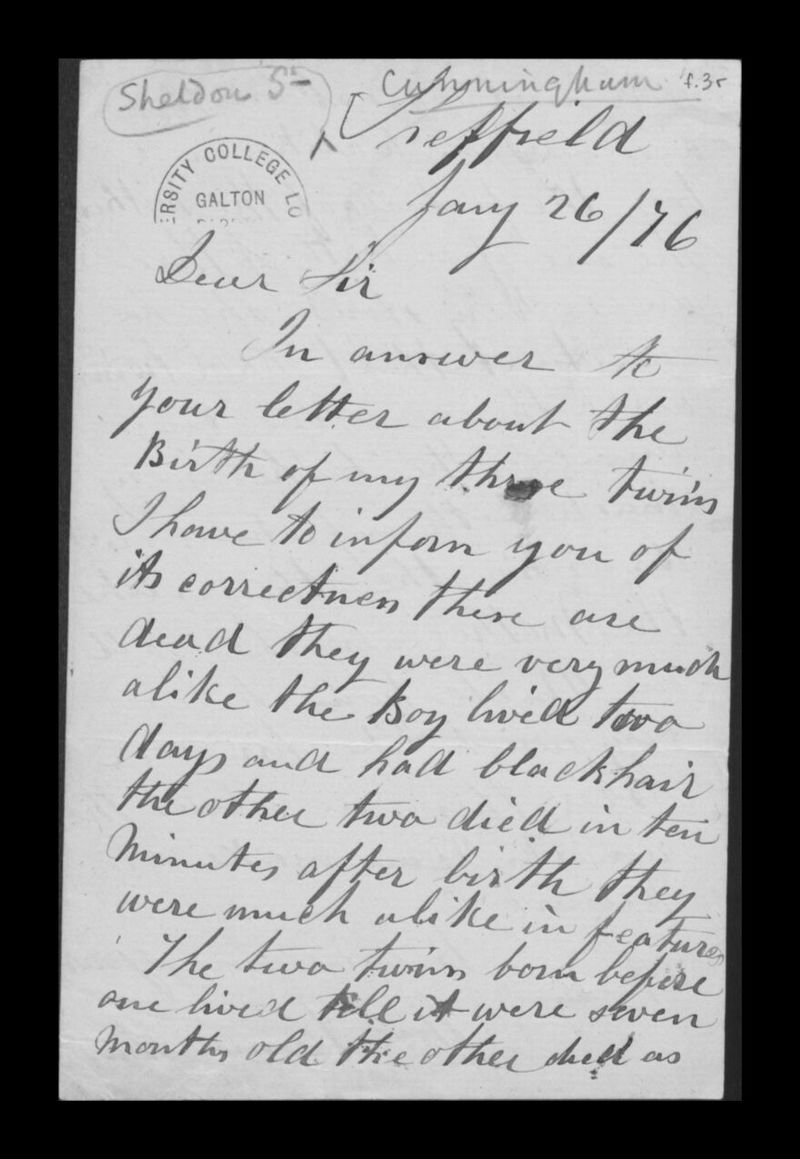 Sheldon St
Cunningham f.3r
Sheffield
ERSITY COLLEGE LO
GALTON
Jany 26/76
Dear Sir
In answer to
your letter about the
Birth of my three twins
I have to inform you of
its correctness these are
dead they were very much
alike the Boy lived two
days and had black hair
the other two died in ten
Minutes after birth they
were much alike in features
The two twins born before
one lived till it were seven
Months old the other died as